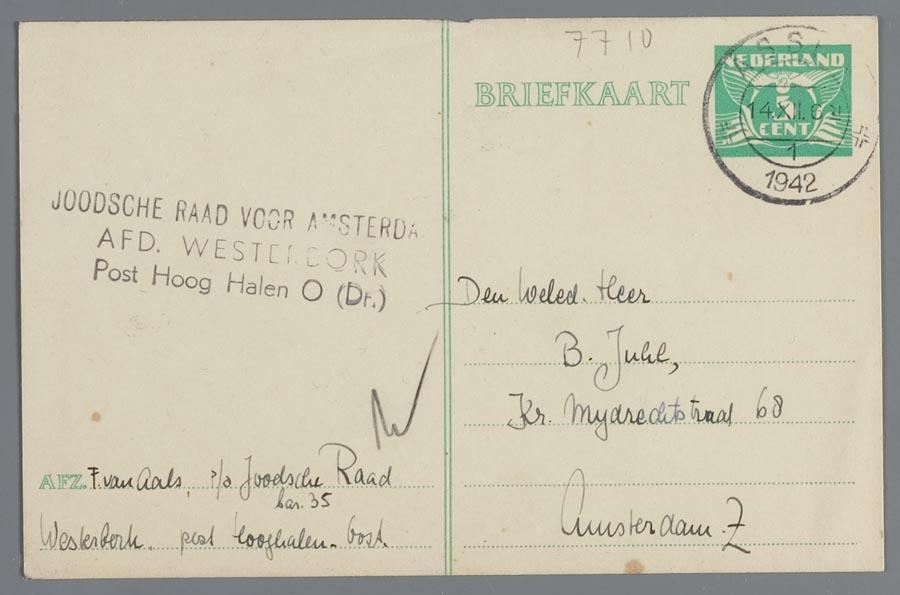 7710
BRIEFKAART
NEDERLAND
5
CENT
ASS
14.XII.
1
1942
JOODSCHE RAAD VOOR AMSTERDA
AFD. WESTERBORK
Post Hoog Halen O (Dr.)
Den Weled. Heer
B. Juhl,
Kr. Mydrechtstraat 68
Amsterdam. Z
AFZ. F. van Aals, p/a Joodsche Raad
bar. 35
Westerbork. post Hooghalen-Oost.